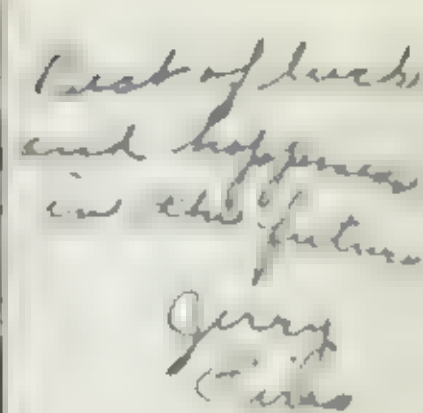 Best of luck
and happiness
in the future
Jerry